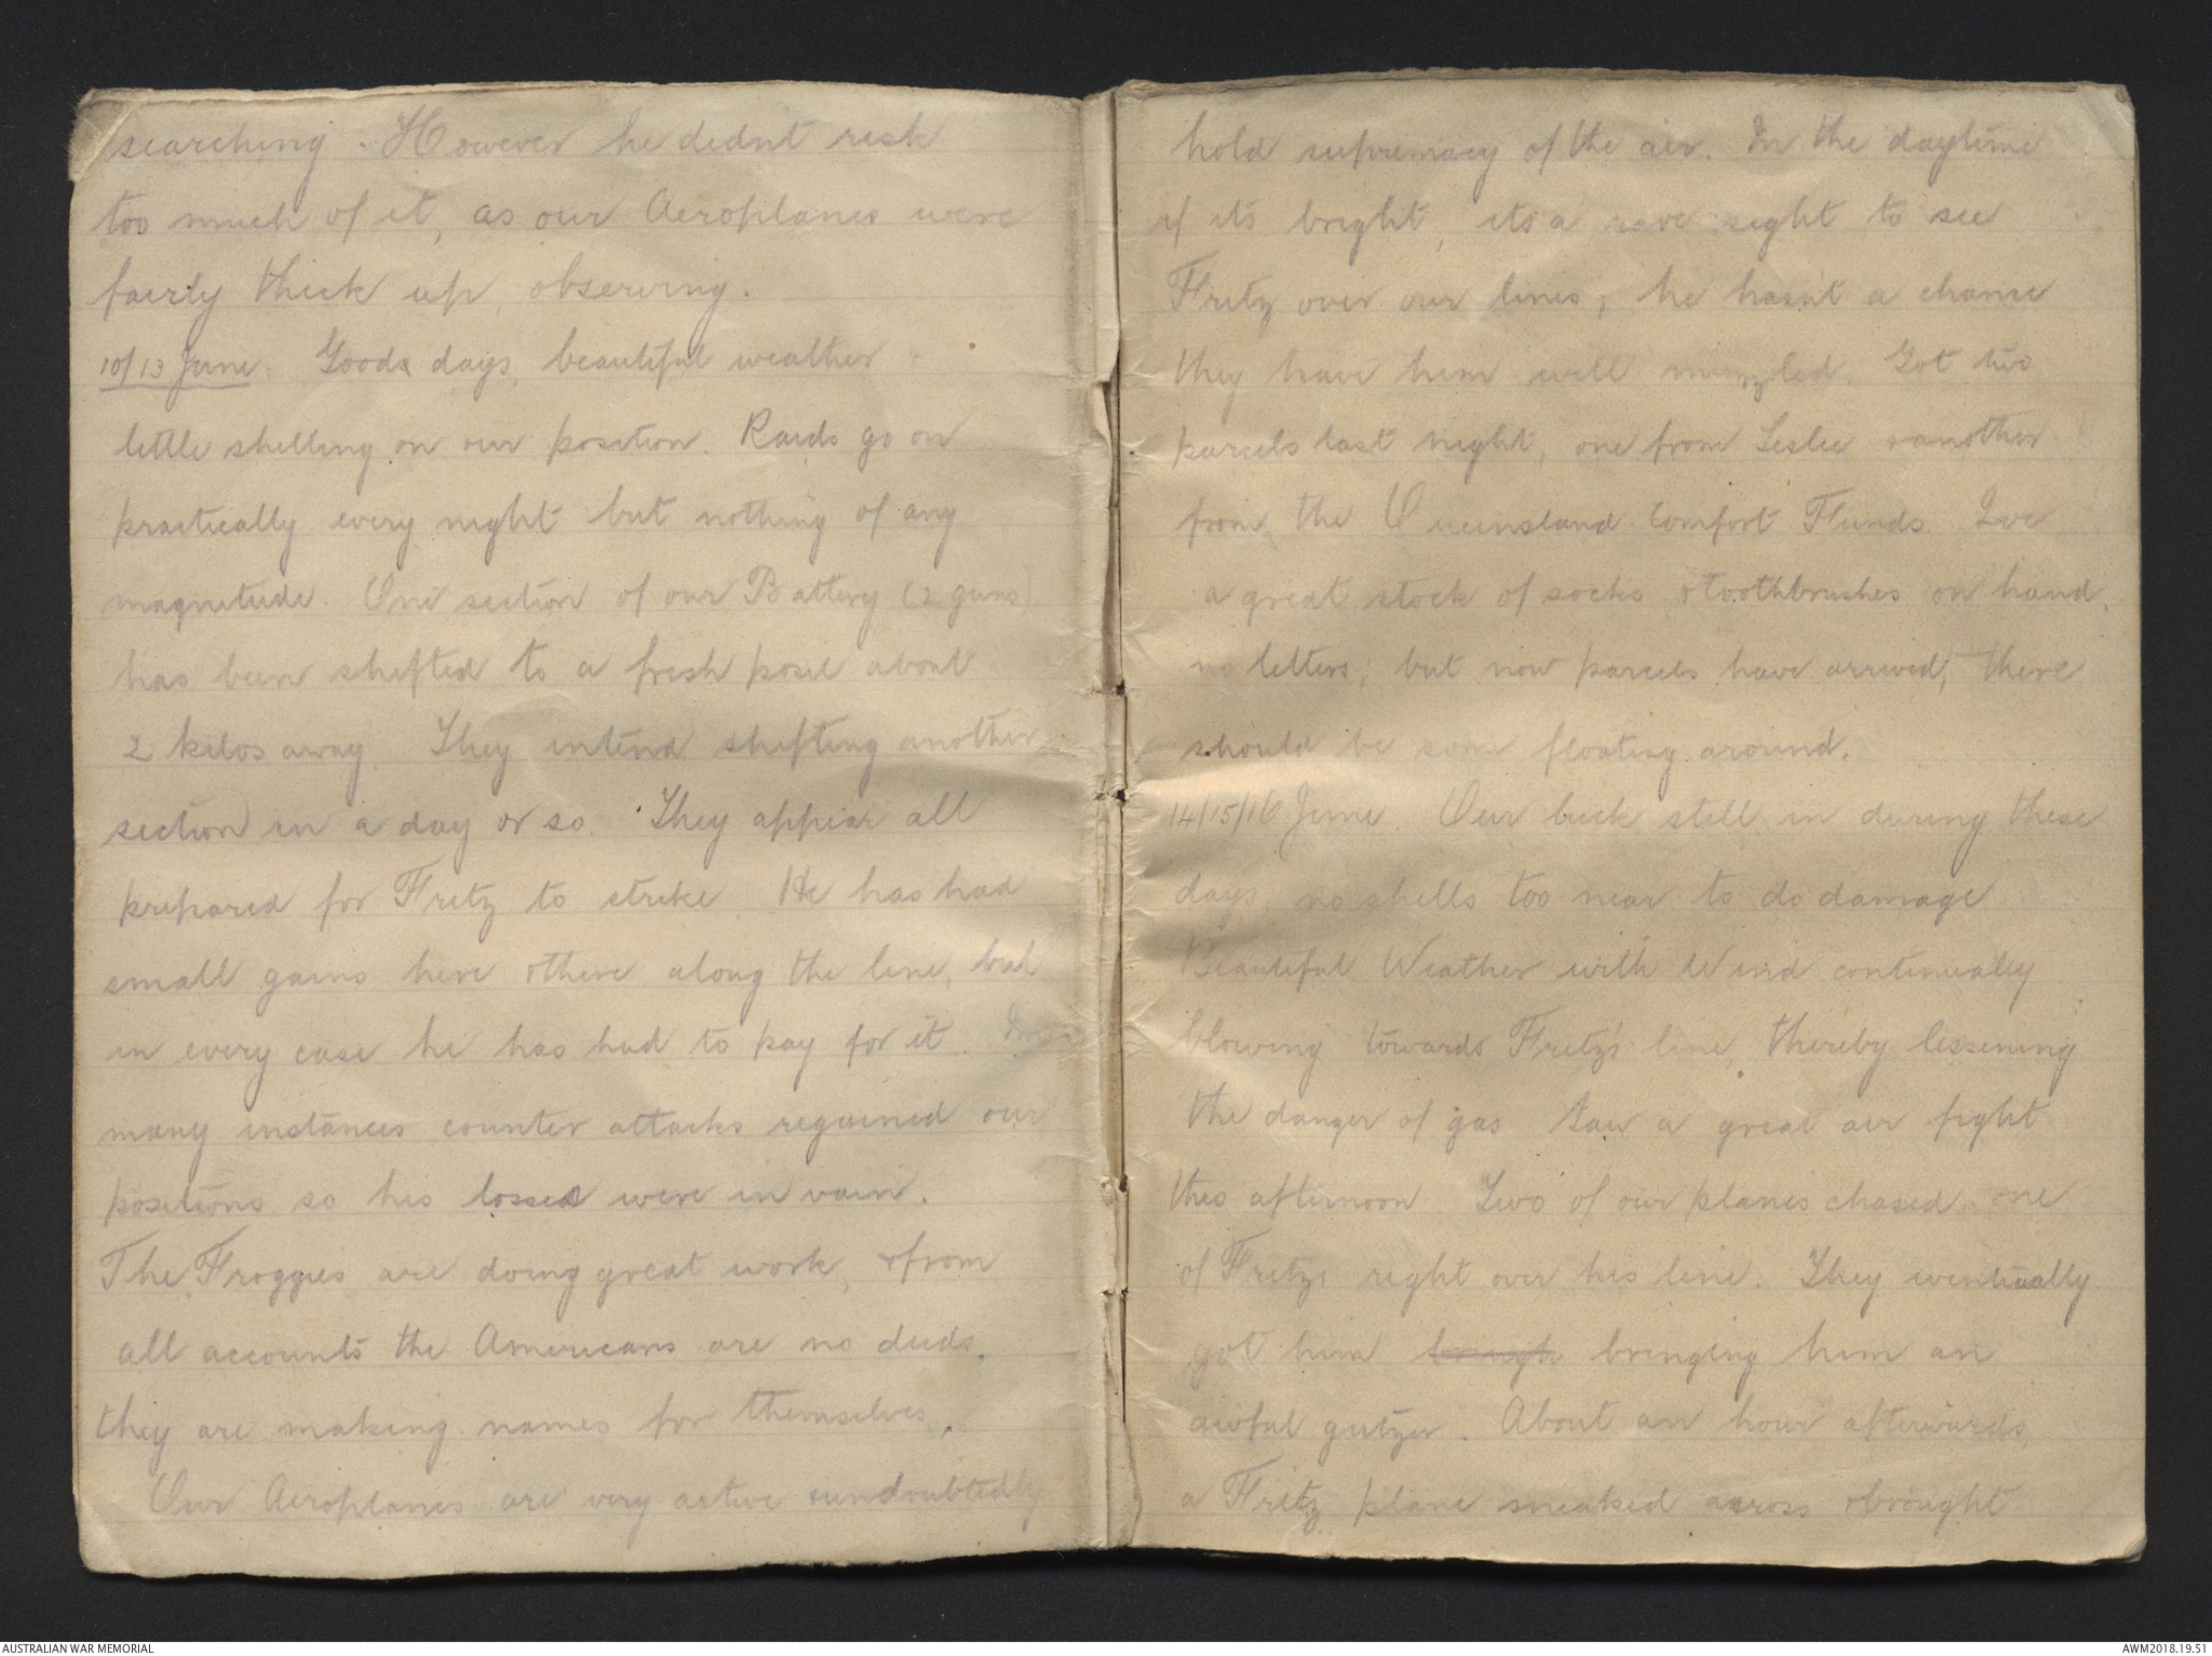 searching. However he didn't risk
too much of it, as our Aeroplanes were
fairly thick up, observing.
10/13 June. Good days, beautiful weather
little shelling on our position. Raids go on
practically every night but nothing of any
magnitude. One section of our Battery (2 guns)
has been shifted to a fresh posit about
2 kilos away. They intend shifting another
section in a day or so. They appear all
prepared for Fritz to strike. He has had
small gains here & there along the line, but
in every case he has had to pay for it. In
many instances counter attacks regained our
positions so his losses were in vain.
The Froggies are doing great work, & from
all accounts the Americans are no duds,
they are making names for themselves,
Our Aeroplanes are very active & undoubtedly
hold supremacy of the air. In the daytime
if its bright, its a rare sight to see
Fritz over our lines, he hasn't a chance
they have him well muzzled. Got two
parcels last night, one from Leslie & another
from the Queensland Comfort Funds. Ive
a great stock of socks & toothbrushes on hand,
no letters, but now parcels have arrived, there
should be some floating around.
14/15/16 June. Our luck still in during these
days, no shells too near to do damage
Beautiful Weather with Wind continually
blowing towards Fritz's line, thereby lessening
the danger of gas. Saw a great air fight
this afternoon. Two of our planes chased one
of Fritz's right over his line. They eventually
got him bringing him an
awful gutzer. About an hour afterwards
a Fritz plane sneaked across & brought
AUSTRALIAN WAR MEMORIAL
AWM2018.19.51